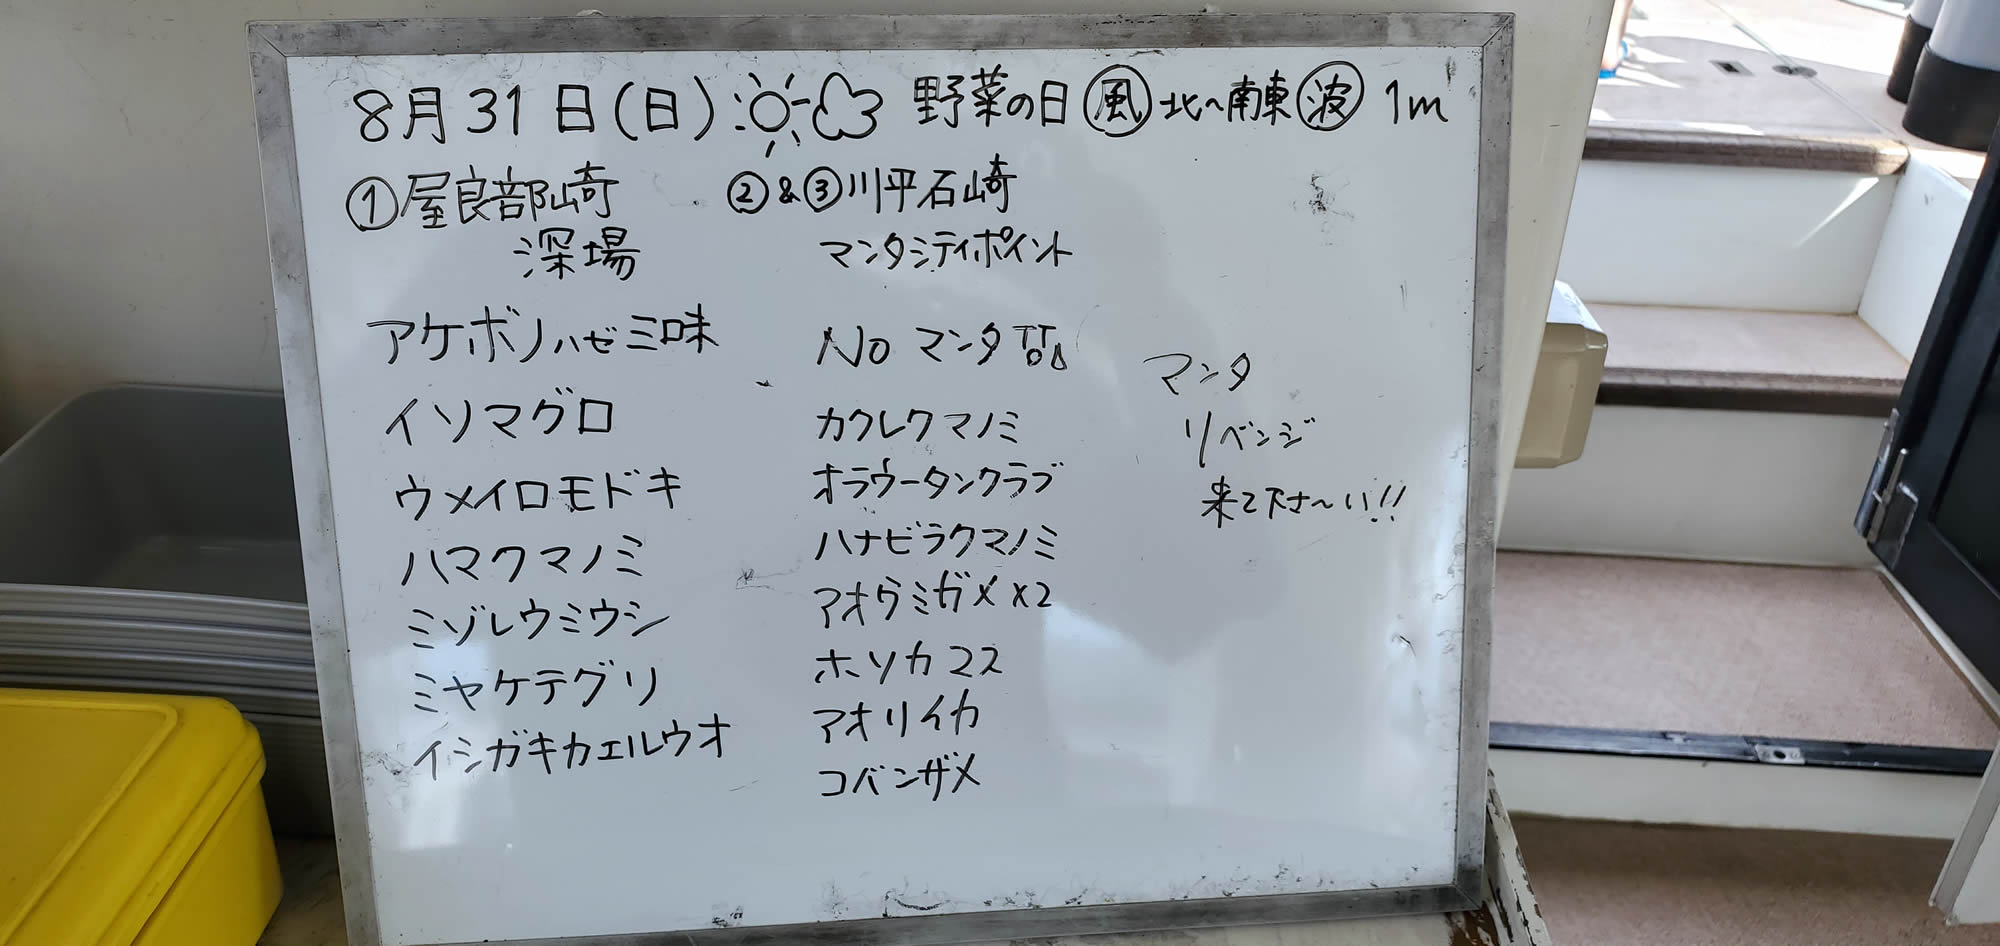 8月31日(日) 野菜の日 風 北〜南東 波 1m
①屋良部崎
深場
アケボノハゼ三昧
イソマグロ
ウメイロモドキ
ハマクマノミ
ミゾレウミウシ
ミヤケテグリ
イシガキカエルウオ
②&③川平石崎
マンタシティポイント
No マンタ
カクレクマノミ
オラウータンクラブ
ハナビラクマノミ
アオウミガメ×2
ホソカマス
アオリイカ
コバンザメ
マンタ
リベンジ
来て下さ〜い!!